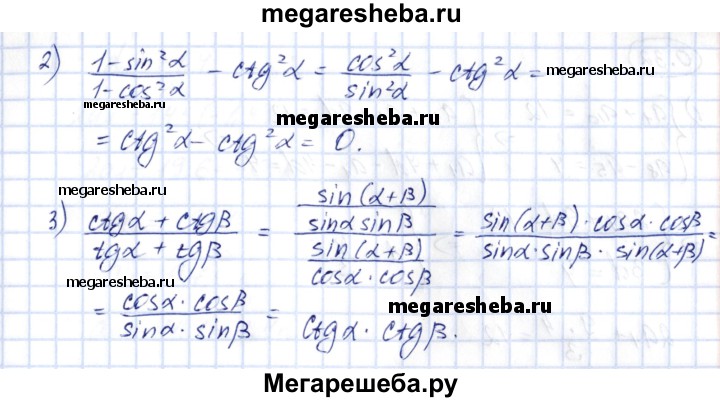 megaresheba.ru
2) (1-sin²α)/(1-cos²α) - ctg²α = cos²α/sin²α - ctg²α = megaresheba.ru
megaresheba.ru
megaresheba.ru
= ctg²α - ctg²α = 0.
megaresheba.ru
3) (ctgα + ctgβ)/(tgα + tgβ) = (sin(α+β)/(sinα sinβ))/(sin(α+β)/(cosα·cosβ)) = (sin(α+β)·cosα·cosβ)/(sinα·sinβ·sin(α+β)) =
megaresheba.ru
megaresheba.ru
= (cosα·cosβ)/(sinα·sinβ) = ctgα·ctgβ.
Мегарешеба.ру